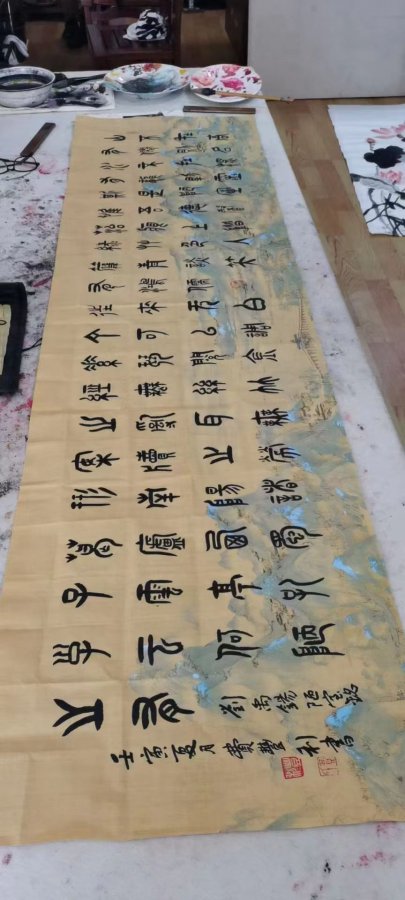 山不在高
有僊則名
水不在深
有龍則靈
斯是陋室
惟吾德馨
苔痕上階
綠艸色入
簾青談笑
有鴻儒
往來无白
丁可以調
素琴閱金
經無絲竹
之亂耳無
案牘之勞
形南陽諸
葛廬西蜀
子雲亭孔
子云何陋
之有
劉禹錫陋室銘
壬寅夏月費豐利書